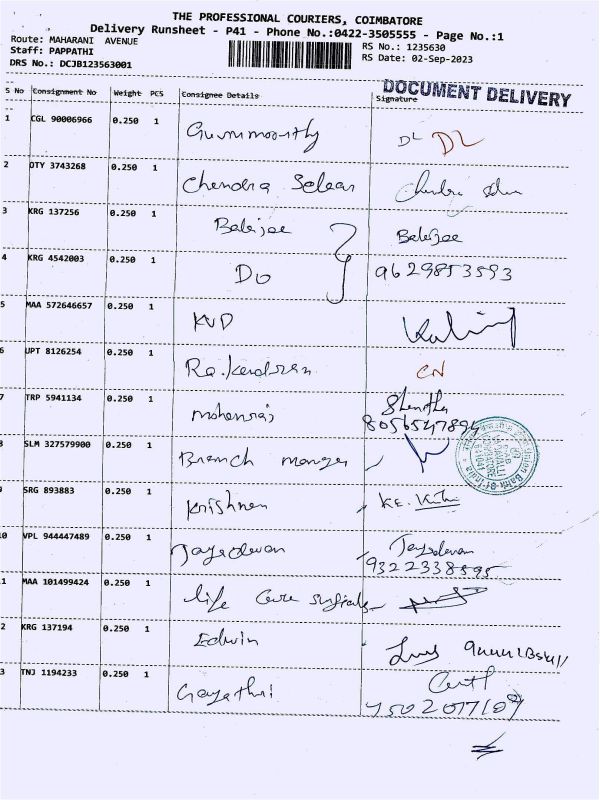 THE PROFESSIONAL COURIERS, COIMBATORE
Delivery Runsheet - P41 - Phone No.:0422-3505555 - Page No.:1
Route: MAHARANI AVENUE
RS No.: 1235630
Staff: PAPPATHI
RS Date: 02-Sep-2023
DRS No.: DCJB123563001
DOCUMENT DELIVERY
S No Consignment No Weight PCS Consignee Details Signature
1 CGL 90006966 0.250 1 Gurumoorthy DL DL
2 OTY 3743268 0.250 1 Chendra Sekar
3 KRG 137256 0.250 1 Balajee Balajee
4 KRG 4542003 0.250 1 Do 9629853593
5 MAA 572646657 0.250 1 KVD
6 UPT 8126254 0.250 1 CN
7 TRP 5941134 0.250 1 mohanraj
8056547894
8 SLM 327579900 0.250 1 Branch manager
9 SRG 893883 0.250 1 Krishnan
10 VPL 944447489 0.250 1 Jayadevan Jayadevan
9322338595
1 MAA 101499424 0.250 1 life Care surgicals
2 KRG 137194 0.250 1 Edwin
3 TNJ 1194233 0.250 1 Gayathri